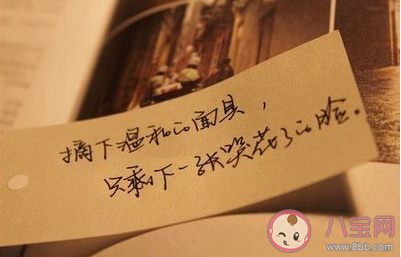 摘下温和的面具，
只剩下一张哭花了的脸。
八宝网
www.8bb.com